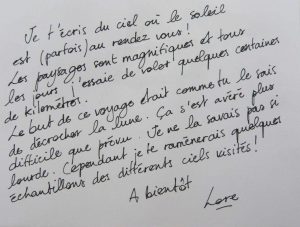 Je t'écris du ciel où le soleil
est (parfois) au rendez vous!
Les paysages sont magnifiques et tous
les jours j'essaie de voler quelques centaines
de kilomètres.
Le but de ce voyage était comme tu le sais
de décrocher la lune. Ça s'est avéré plus
difficile que prévu. Je ne la savais pas si
lourde. Cependant je te ramènerais quelques
échantillons des différents ciels visités!
A bientôt
Lore